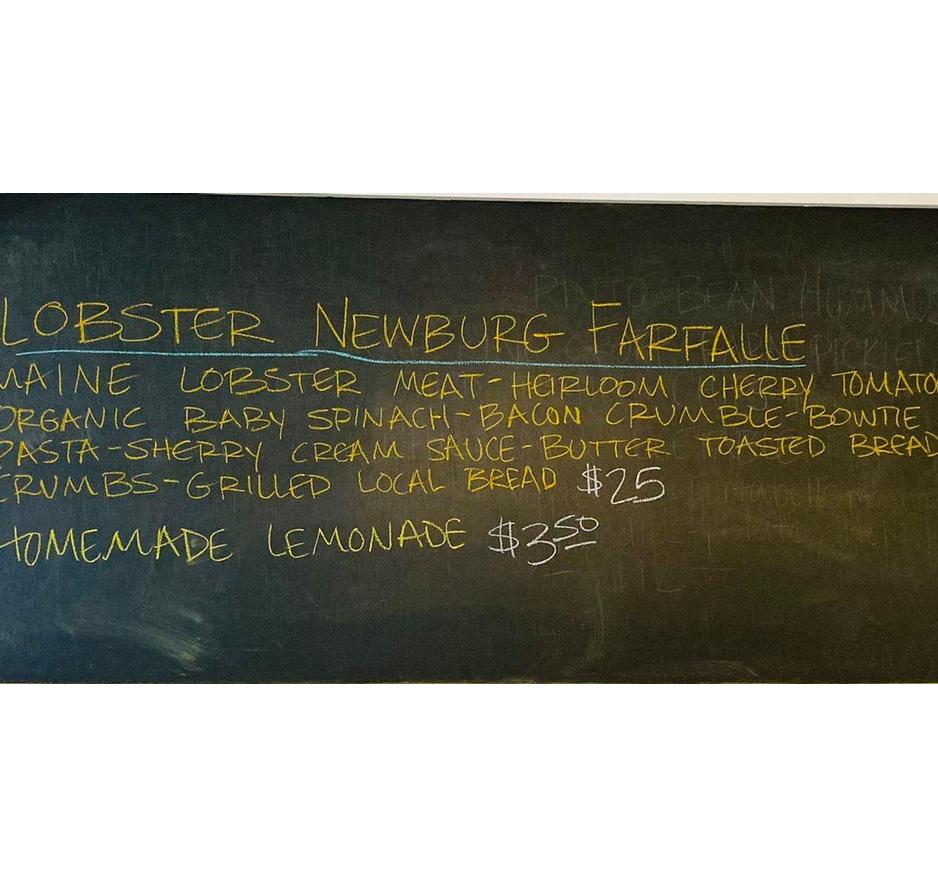 LOBSTER NEWBURG FARFALLE
MAINE LOBSTER MEAT-HEIRLOOM CHERRY TOMATO
ORGANIC BABY SPINACH-BACON CRUMBLE-BOWTIE
PASTA-SHERRY CREAM SAUCE-BUTTER TOASTED BREAD
CRUMBS-GRILLED LOCAL BREAD $25
HOMEMADE LEMONADE $3.50